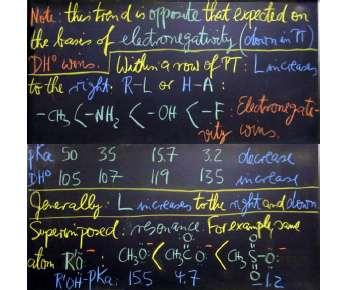 Note: this trend is opposite that expected on
the basis of electronegativity (down in PT)
DH° wins. Within a row of PT: L increases
to the right: R-L or H-A:
-CH3 < -NH2 < -OH < -F: Electronegat-
ivity wins.
pKa 50 35 15.7 3.2 decrease
DH° 105 107 119 135 increase
Generally: L increases to the right and down
Superimposed: resonance. For example, same
atom RO⁻: CH3O⁻ < CH3CO⁻ < CH3SO⁻
R'OH pKa: 15.5 4.7 -1.2